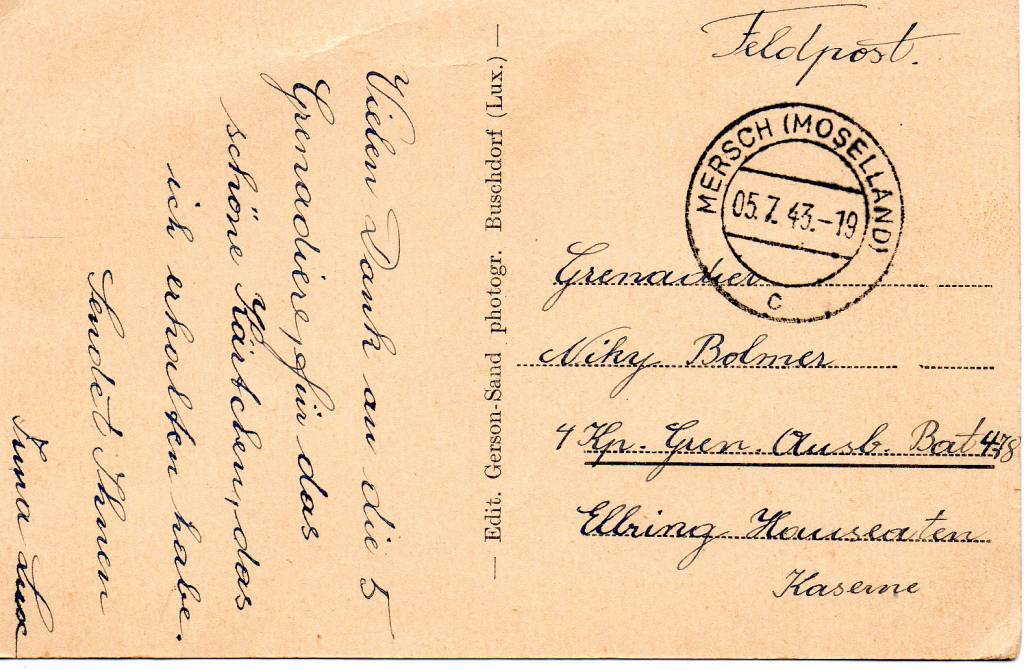 Vielen Dank an die 5
Grenadiere, für das
schöne Kärtchen, das
ich erhalten habe.
Sendet Ihnen
— Edit. Gerson-Sand photogr. Buschdorf (Lux.) —
Feldpost.
MERSCH (MOSELLAND)
05.7.43.-19
c
Grenadier
Niky Bolmer
4 Kp. Gren. Ausb. Bat 478
Elbring Hanseaten
Kaserne